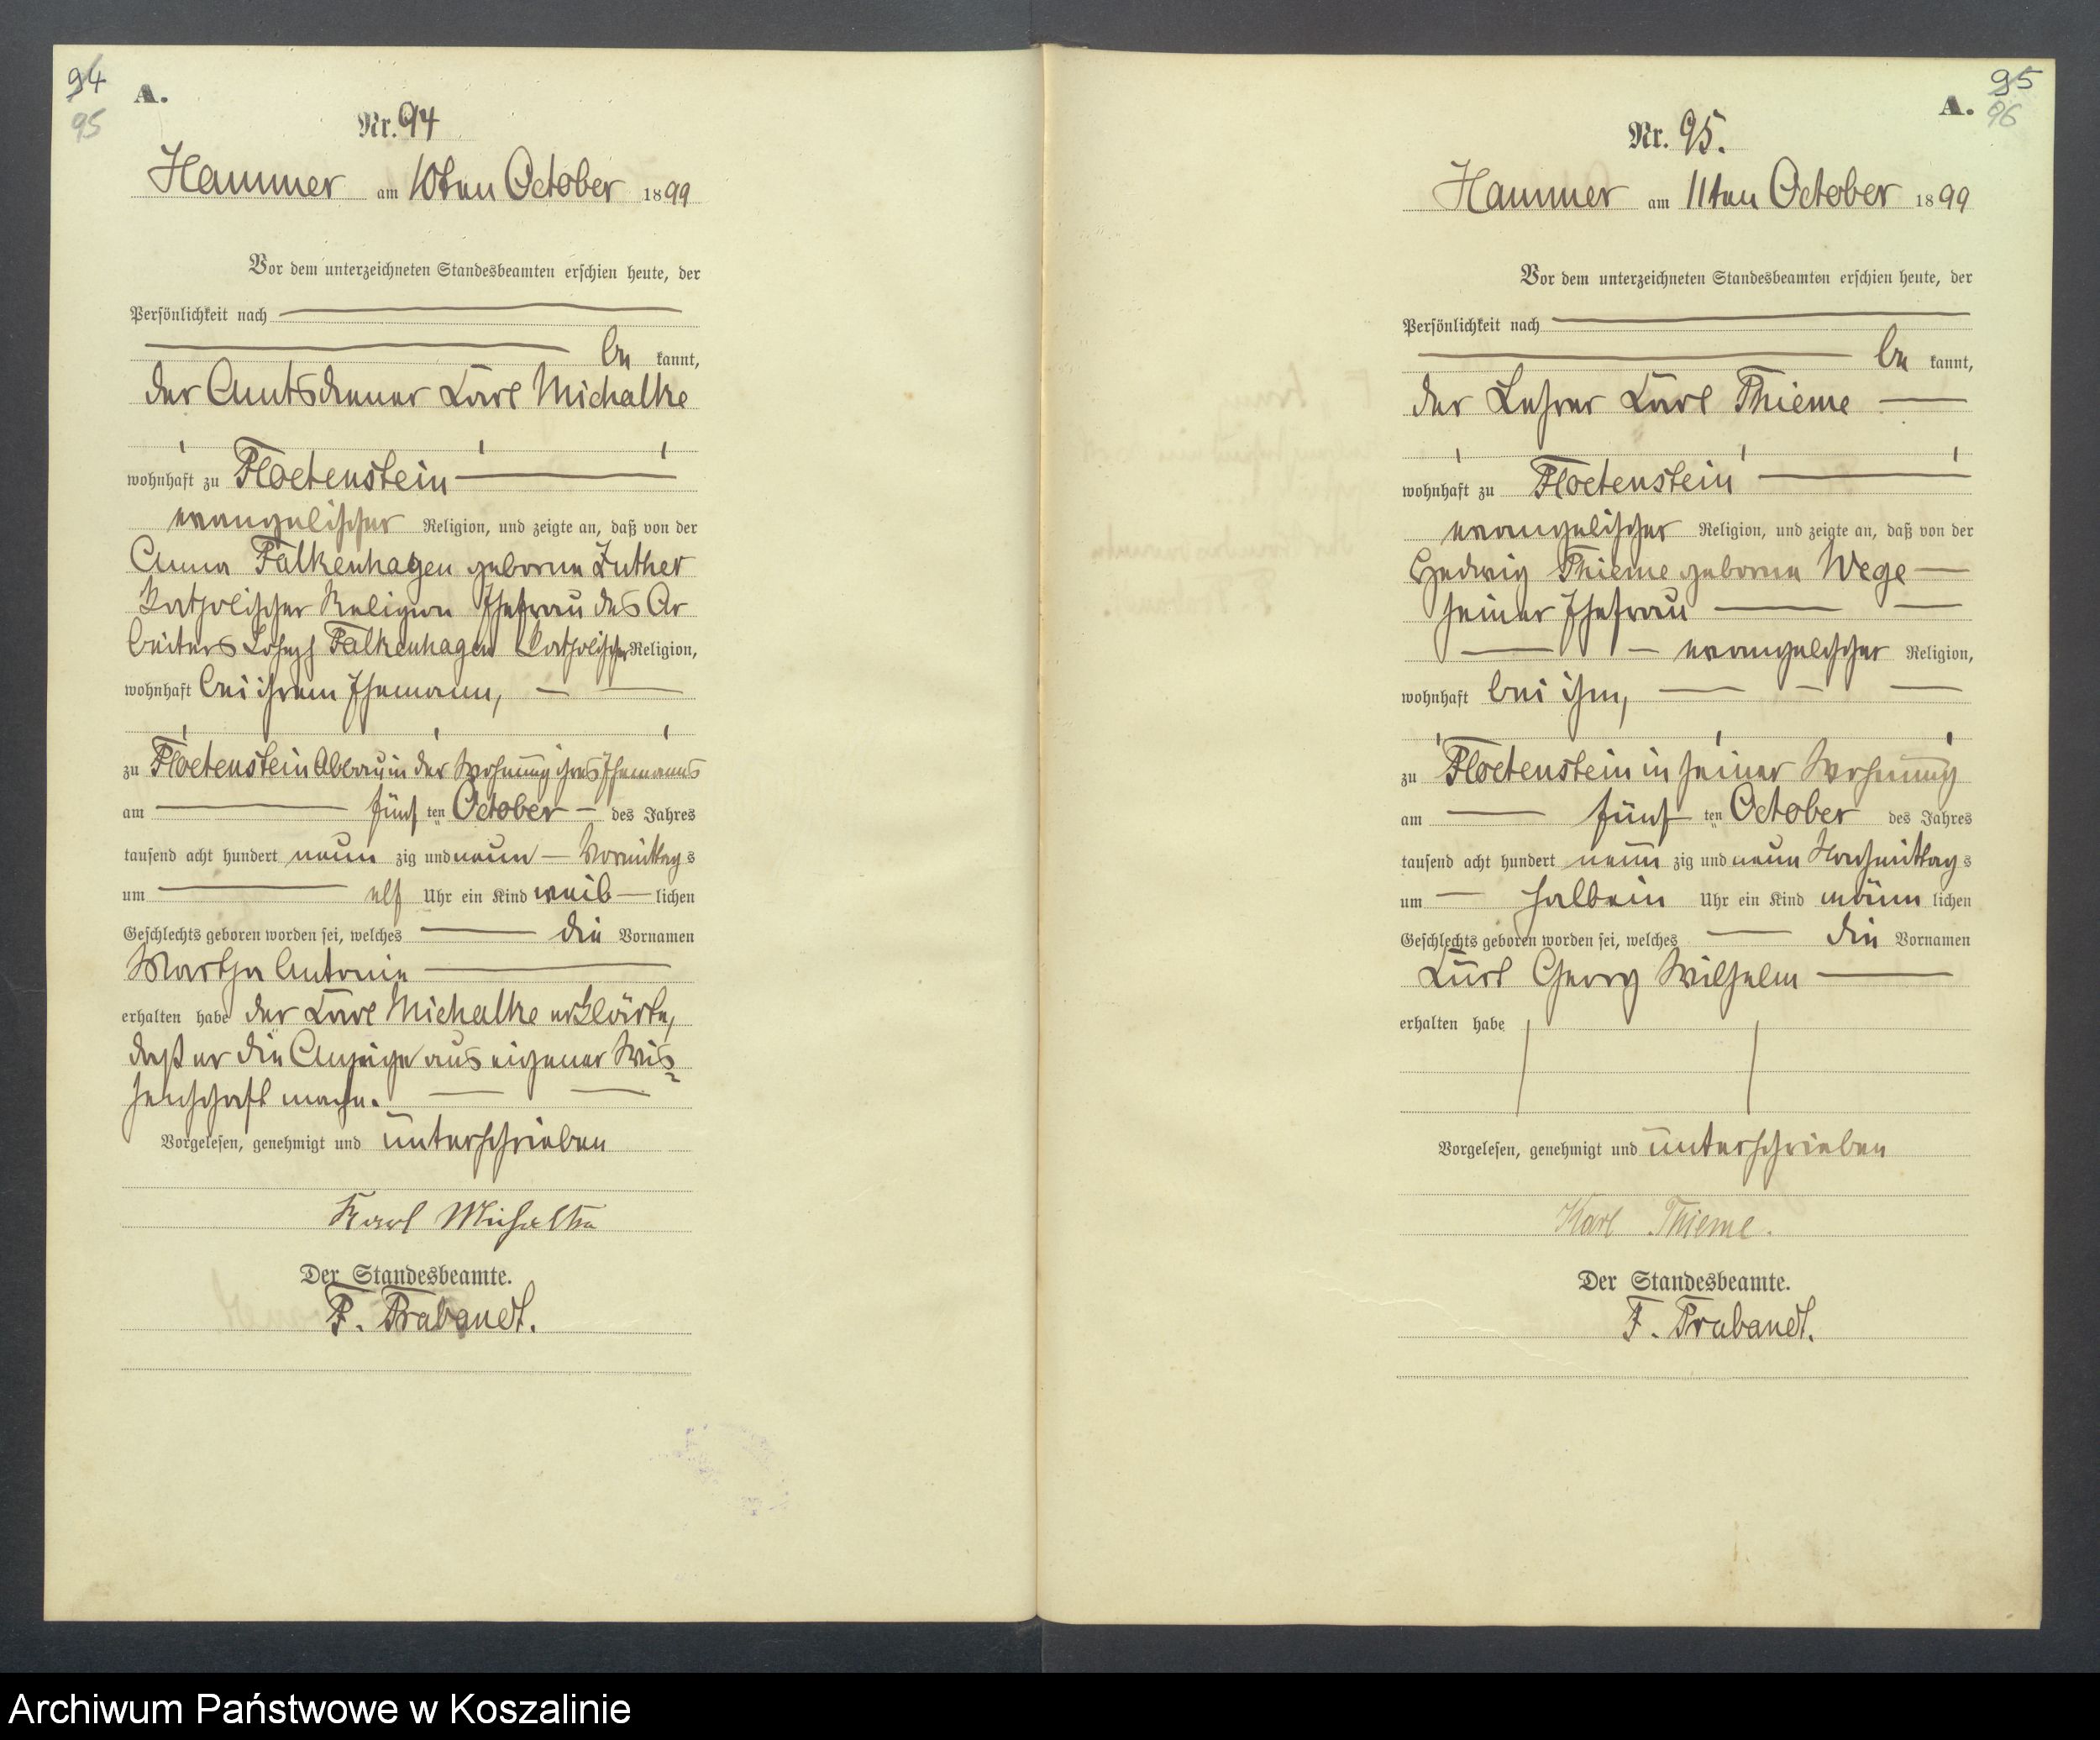 94
95
A.
Nr. 94
Hammer am 10ten October 1899
Vor dem unterzeichneten Standesbeamten erschien heute, der
Persönlichkeit nach
be kannt,
der Amtsdiener Karl Michalke
wohnhaft zu Floetenstein
evangelischer Religion, und zeigte an, daß von der
Anna Falkenhagen geborne Luther
katholischer Religion Ehefrau des Ar
beiters Joseph Falkenhagen katholischer Religion,
wohnhaft bei ihrem Ehemann,
zu Floetenstein Abbau in der Wohnung ihres Ehemanns
am fünf ten October des Jahres
tausend acht hundert neun zig und neun Vormittag s
um elf Uhr ein Kind weib lichen
Geschlechts geboren worden sei, welches die Vornamen
Martha Antonie
erhalten habe der Karl Michalke erklärte,
daß er die Anzeige aus eigener Wis-
senschaft mache.
Vorgelesen, genehmigt und unterschrieben
Karl Michalke
Der Standesbeamte.
F. Trabandt.
95
96
A.
Nr. 95.
Hammer am 11ten October 1899
Vor dem unterzeichneten Standesbeamten erschien heute, der
Persönlichkeit nach
be kannt,
der Lehrer Karl Thieme
wohnhaft zu Floetenstein
evangelischer Religion, und zeigte an, daß von der
Hedwig Thieme geborne Wege
seiner Ehefrau
evangelischer Religion,
wohnhaft bei ihm,
zu Floetenstein in seiner Wohnung
am fünf ten October des Jahres
tausend acht hundert neun zig und neun Nachmittag s
um halb ein Uhr ein Kind männ lichen
Geschlechts geboren worden sei, welches die Vornamen
Kurt Georg Wilhelm
erhalten habe
Vorgelesen, genehmigt und unterschrieben
Karl Thieme.
Der Standesbeamte.
F. Trabandt.
Archiwum Państwowe w Koszalinie